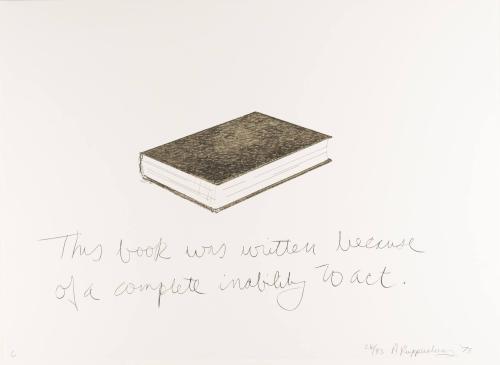 This book was written because
of a complete inability to act.
C
A Ruppersberg '75